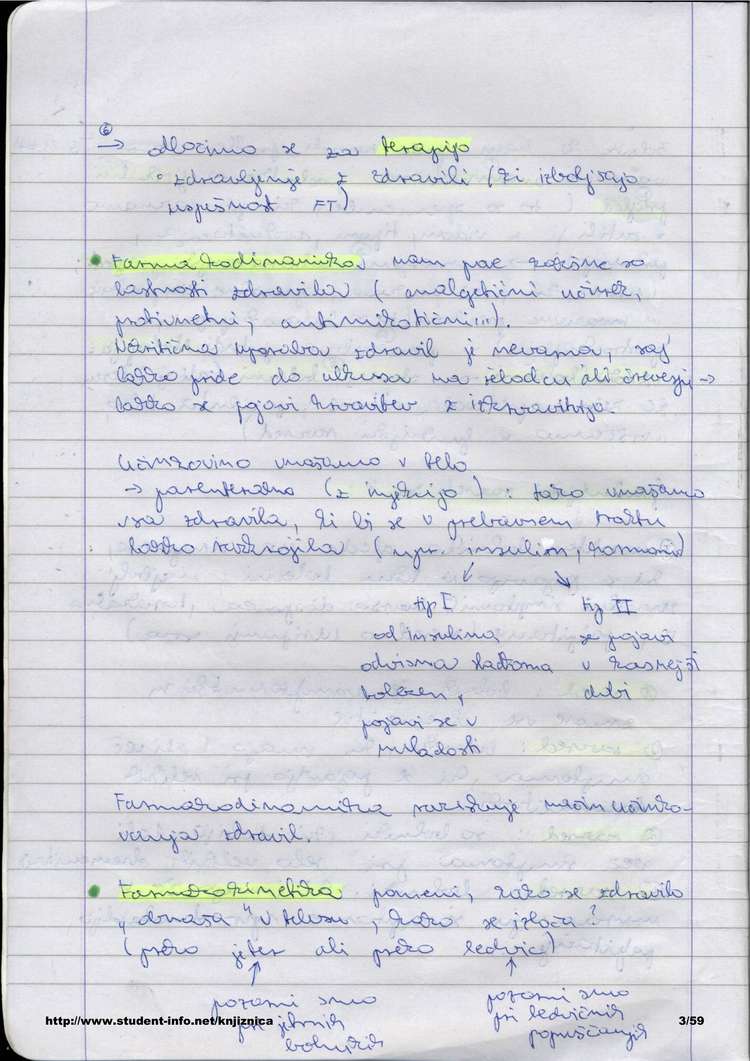 ⑥
→ odločimo se za terapijo
◦ zdravljenje z zdravili (ki izboljšajo
uspešnost FT)
• Farmakodinamika, nam pač kakšne so
lastnosti zdravila (analgetični učinek,
protivnetni, antimikotični...).
Nekritična uporaba zdravil je nevarna, saj
lahko pride do ulkusa na želodcu ali črevesju →
lahko se pojavi krvavitev z izkrvavitvijo.
Učinkovino vnašamo v telo
→ parenteralno (z injekcijo): tako vnašamo
vsa zdravila, ki bi se v prebavnem traktu
lahko razkrojila (npr. insulin, hormoni)
tip I tip II
od insulina se pojavi
odvisna sladkorna v kasnejši
bolezen, dobi
pojavi se v
mladosti
Farmakodinamika raziskuje način učinko-
vanja zdravil.
• Farmakokinetika pomeni, kako se zdravilo
„obnaša" v telesu, kako se izloča?
(preko jeter ali preko ledvic)
pozorni smo pozorni smo
pri jetrnih pri ledvičnih
bolnikih popuščanjih
http://www.student-info.net/knjiznica 3/59